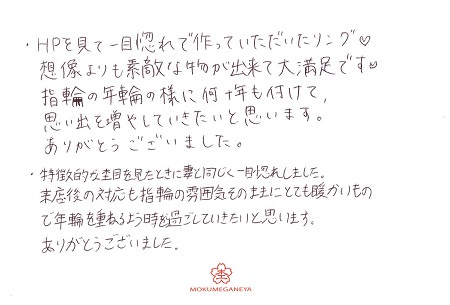 ・HPを見て一目惚れで作っていただいたリング♡
想像よりも素敵な物が出来て大満足です♡
指輪の年輪の様に何十年も付けて、
思い出を増やしていきたいと思います。
ありがとうございました。
・特徴的な杢目を見たときに妻と同じく一目惚れしました。
来店後の対応も指輪の雰囲気そのままにとても暖かいもの
で年輪を重ねるよう時を過ごしていきたいと思います。
ありがとうございました。
MOKUMEGANEYA